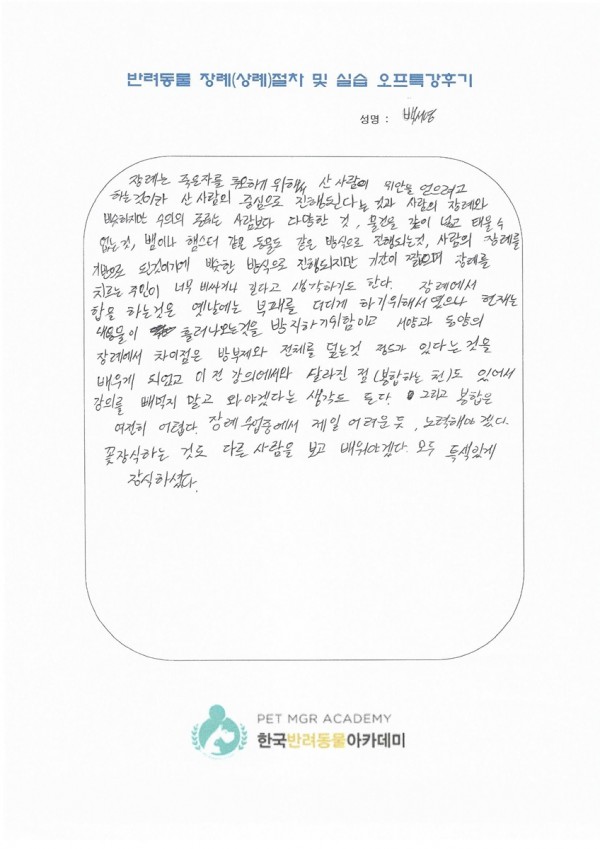 반려동물 장례(상례)절차 및 실습 오프특강후기
성명 : 백서영
장례는 죽은자를 추모하기 위해 산 사람이 위안을 얻으려고
하는것이라 산 사람의 중심으로 진행된다는 것과 사람의 장례와
비슷하지만 수의의 종류는 사람보다 다양한 것, 물건을 같이 넣고 태울 수
없는것, 뱀이나 햄스터 같은 동물도 같은 방식으로 진행되는것, 사람의 장례를
기반으로 된것이기에 비슷한 방식으로 진행되지만 기간이 짧으며 장례를
치르는 주인이 너무 비싸거나 길다고 생각하기도 한다. 장례에서
합을 하는것은 옛날에는 부패를 더디게 하기위해서 였으나 현재는
내용물이 흘러나오는것을 방지하기위함이고 서양과 동양의
장례에서 차이점은 방부제와 전체를 덮는것 정도가 있다는 것을
배우게 되었고 이전 강의에서와 달라진 점 (봉합하는 천)도 있어서
강의를 빼먹지 말고 와야겠다는 생각도 든다. 그리고 봉합은
여전히 어렵다. 장례 수업중에서 제일 어려운듯, 노력해야겠다.
꽃장식하는 것도 다른 사람을 보고 배워야겠다. 모두 특색있게
장식하셨다.
PET MGR ACADEMY
한국반려동물아카데미